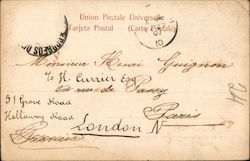 Union Postale Universelle
Tarjeta Postal (Carte Postale)
Monsieur Henri Guignon
To H. Currier Esq
rue de Passy
51 Grove Road
Holloway Road
Paris
London N
Francia